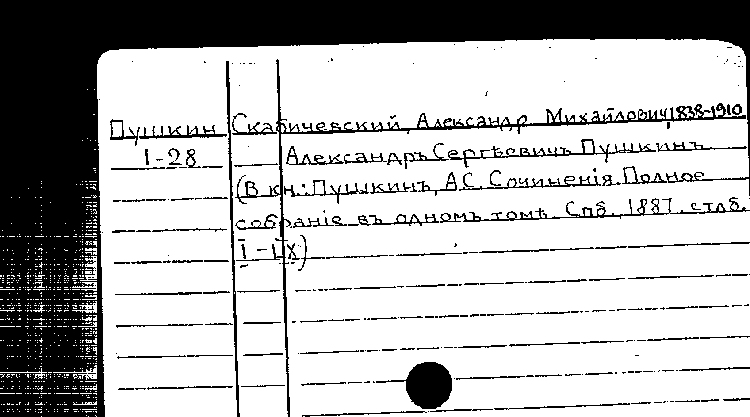 Пушкин Скабичевский, Александр Михайлович, 1838-1910
I-28 Александръ Сергѣевичъ Пушкинъ
(В кн.: Пушкинъ, А.С. Сочиненія. Полное
собраніе въ одномъ томѣ. Спб., 1887. стлб.
I-IX)